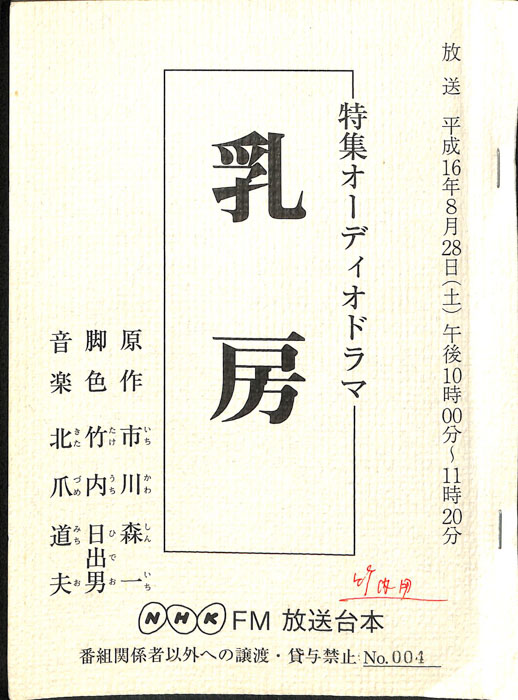 放送 平成16年8月28日(土) 午後10時00分～11時20分
特集オーディオドラマ
乳房
原作 市川森一
いちかわしんいち
脚色 竹内日出男
たけうちひでお
音楽 北爪道夫
きたづめみちお
竹内用
NHK FM 放送台本
番組関係者以外への譲渡・貸与禁止 No.004